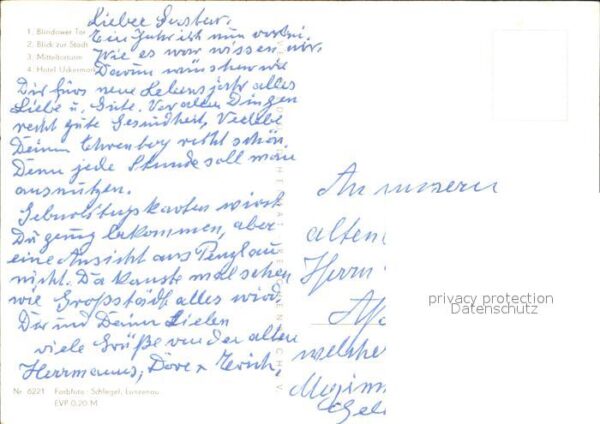 Lieber Gustav.
1. Blindower Tor
Ein Jahr ist nun vorbei.
2. Blick zur Stadt
Wie es war wissen wir.
3. Mitteltorturm
Darum wünschen wir
4. Hotel Uckermark
Dir fürs neue Lebensjahr alles
Liebe u. Gute. Vor allen Dingen
recht gute Gesundheit,
Deinen recht schön.
Denn jede Stunde soll man
ausnützen.
Geburtstagskarten wirst
Du genug bekommen, aber
eine Ansicht aus Penzlau
nicht. Da kannste mal sehen
wie Großstadt alles wird.
Dir und Deinen Lieben
viele Grüße von der alten
Herrmanns, Dore + Erich.
An unseren
alten
Herrn
welche
Nr. 6221 Farbfoto: Schlegel, Lunzenau
EVP 0,20 M
privacy protection
Datenschutz